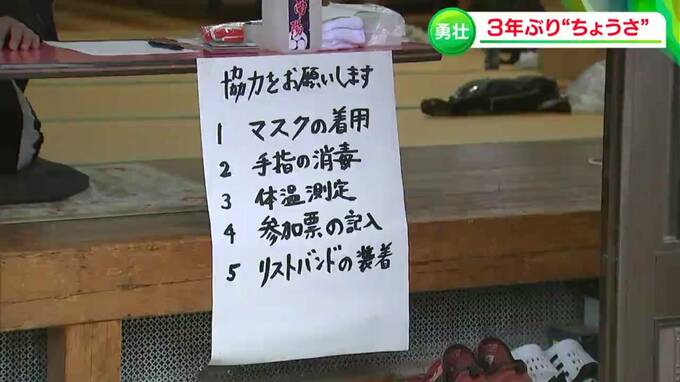 勇壮
3年ぶり“ちょうさ”
協力をお願いします
1 マスクの着用
2 手指の消毒
3 体温測定
4 参加票の記入
5 リストバンドの装着